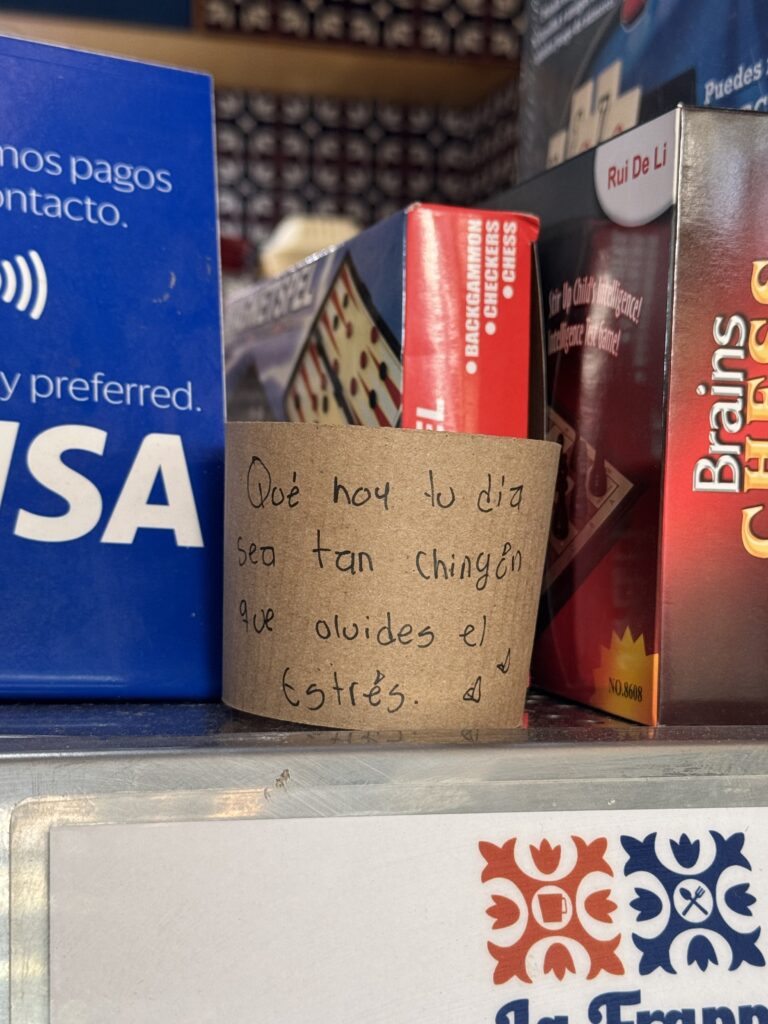 mos pagos
ontacto.
y preferred.
ISA
Puedes
Rui De Li
BACKGAMMON
CHECKERS
CHESS
Intelligence Test Game!
Brains
CHESS
NO.8608
Qué hoy tu día
sea tan chingón
que olvides el
Estrés.
La Frapp